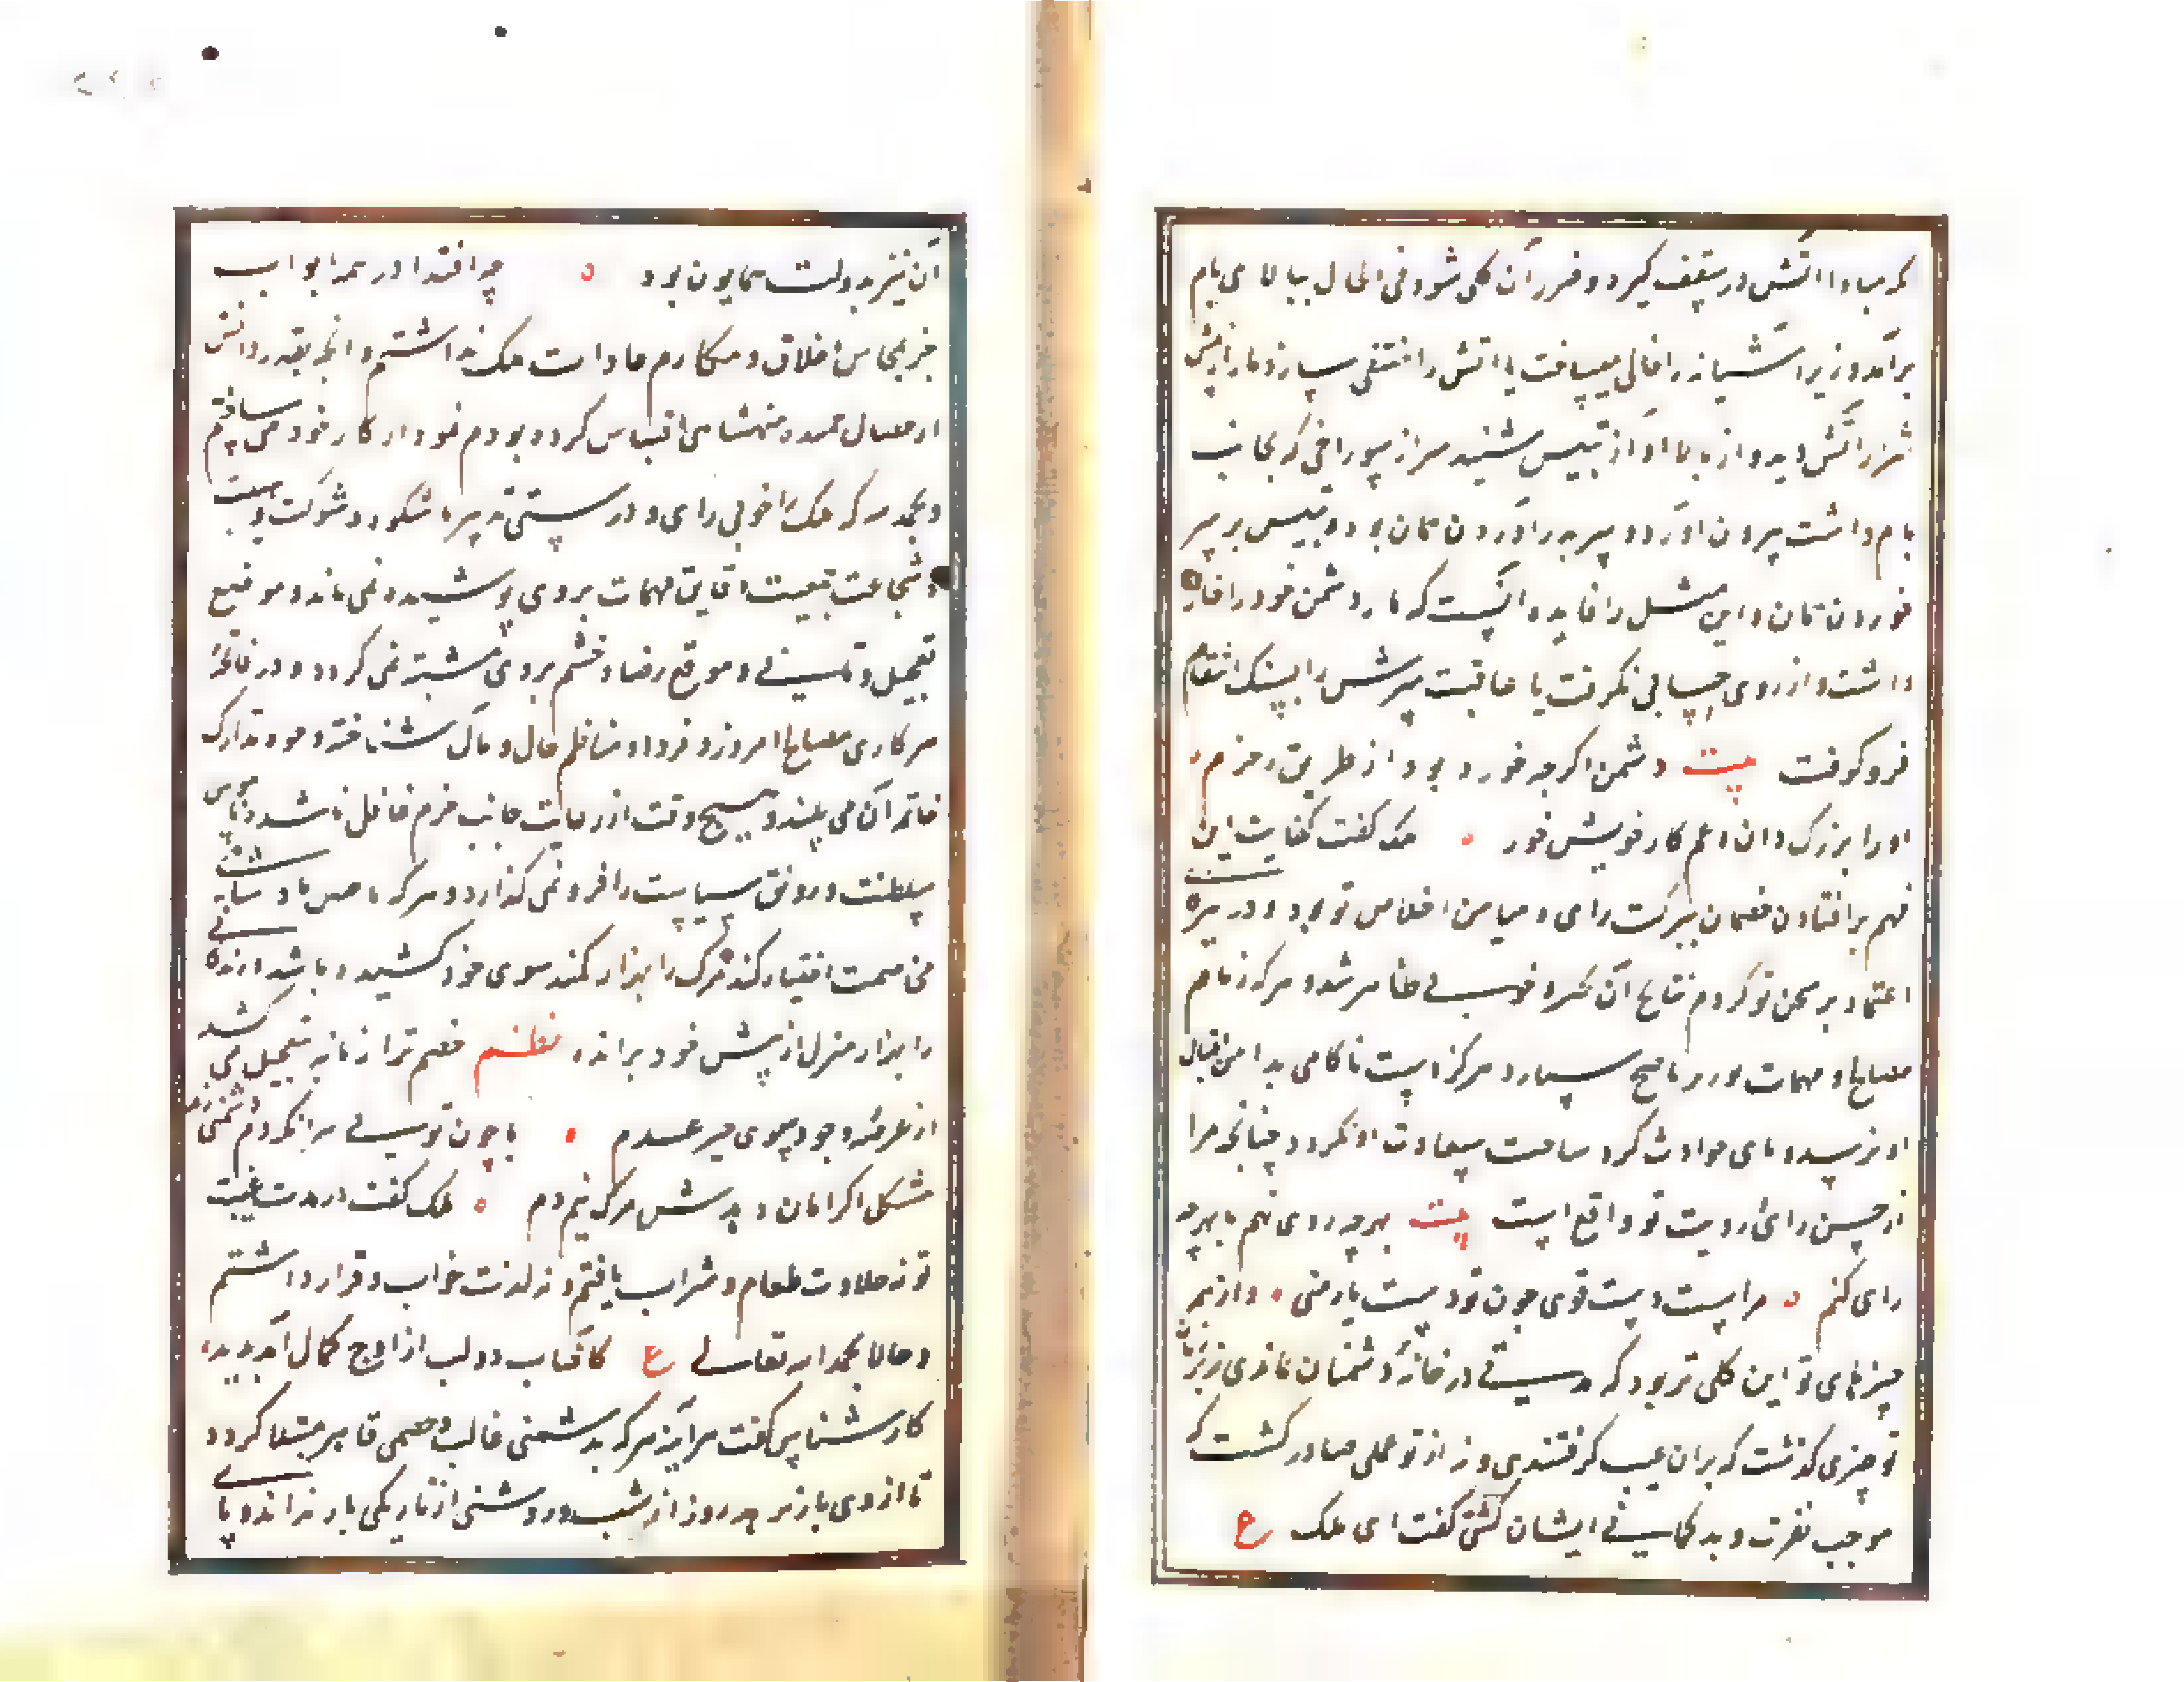 که مبادا آتش در سقف گیرد و ضرر آن کلی شود فی الحال ببالای بام
برآمد و زیر آشیانه را خالی میساخت یا آتش را منتفی سازد مار از پیش
شرار آتش دید و از بالا آواز تبیس شنید سر از سوراخی که بجانب
بام داشت بیرون آورد و سر بدر آوردن همان بود و تبیس بر سر
خوردن همان و این مثل را فایده آنست که مار دشمن خود را خوار
داشت و از روی حسابی نگرفت تا عاقبت سرش را بسنک انتقام
فرو کوفت بیت دشمن اگرچه خورد بود از طریق حزم
او را بزرک دان و غم کار خویش خور ملک گفت کفایت این
مهم و برافتادن خصمان ببرکت رای و میامن اخلاص تو بود و در هر
اعتماد بر سخن تو کردم نتایج آن بخیر و خوبی ظاهر شد و هرکه زمام
مصالح و مهمات بوزیر ناصح سپارد هرگز دست ناکامی بدامن اقبال
او نرسد و پای حوادث گرد ساحت سعادت او نگردد چنانچه مرا
از حسن رای و رویت تو واقع است بیت بهرچه روی نهم یا بهرچه
رای کنم مراست دست قوی چون تو دست یار منی و از همه
هنرهای تو این کلی تر بود که مدتی در خانهٔ دشمنان ماندی و نه بر زبان
تو چیزی گذشت که بران عیب گرفتندی و نه از تو عملی صادر گشت که
موجب نفرت و بدگمانی ایشان گشتی گفت ای ملک ع
آن نیز بدولت همایون بود چه اقتدا در همه ابواب
جز بمحاسن اخلاق و مکارم عادات ملک نداشتم و آنچه بقدر دانش
از خصال حمیده شهنشاهی اقتباس کرده بودم خود را در کار خود می ساختم
و بحمد الله که ملک را خوبی رای و درستی تدبیر و شکوه و شوکت و هیبت
و شجاعت جمعست دقایق مهمات بر وی پوشیده نمی ماند و موضع
تعجیل و تانی و موقع رضا و خشم بر وی مشتبه نمی گردد و در فاتحهٔ
هر کاری مصالح امروز و فردا و مناظم حال و مآل شناخته وجوه تدارک
خاتم آن می بیند و هیچ وقت از رعایت جانب حزم غافل نباشد و ناموس
سلطنت و رونق سیاست را فرو نمی گذارد و هرکه با چنین پادشاهی
مخاصمت اختیار کند مرگ را بهزار کمند سوی خود کشیده باشد و زندگانی
را بهزار منزل از پیش خود برانده نظم خصم ترا زمانه بتعجیل می کشد
از عرصهٔ وجود بسوی حیز عدم با چون تویی هر آنکه دم دشمنی زند
مشکل اگر امان دهدش مرگ نیم دم ملک گفت در مدت غیبت
تو نه حلاوت طعام و شراب یافتم و نه لذت خواب و قرار داشتم
و حالا بحمد الله تعالی ع کافتاب دولت از اوج کمال آمد پدید
کارشناس گفت هر آینه هرکه بدشمنی غالب و خصمی قاهر مبتلا گردد
تا از وی باز نرهد روز از شب و روشنی از تاریکی باز نداند و پای